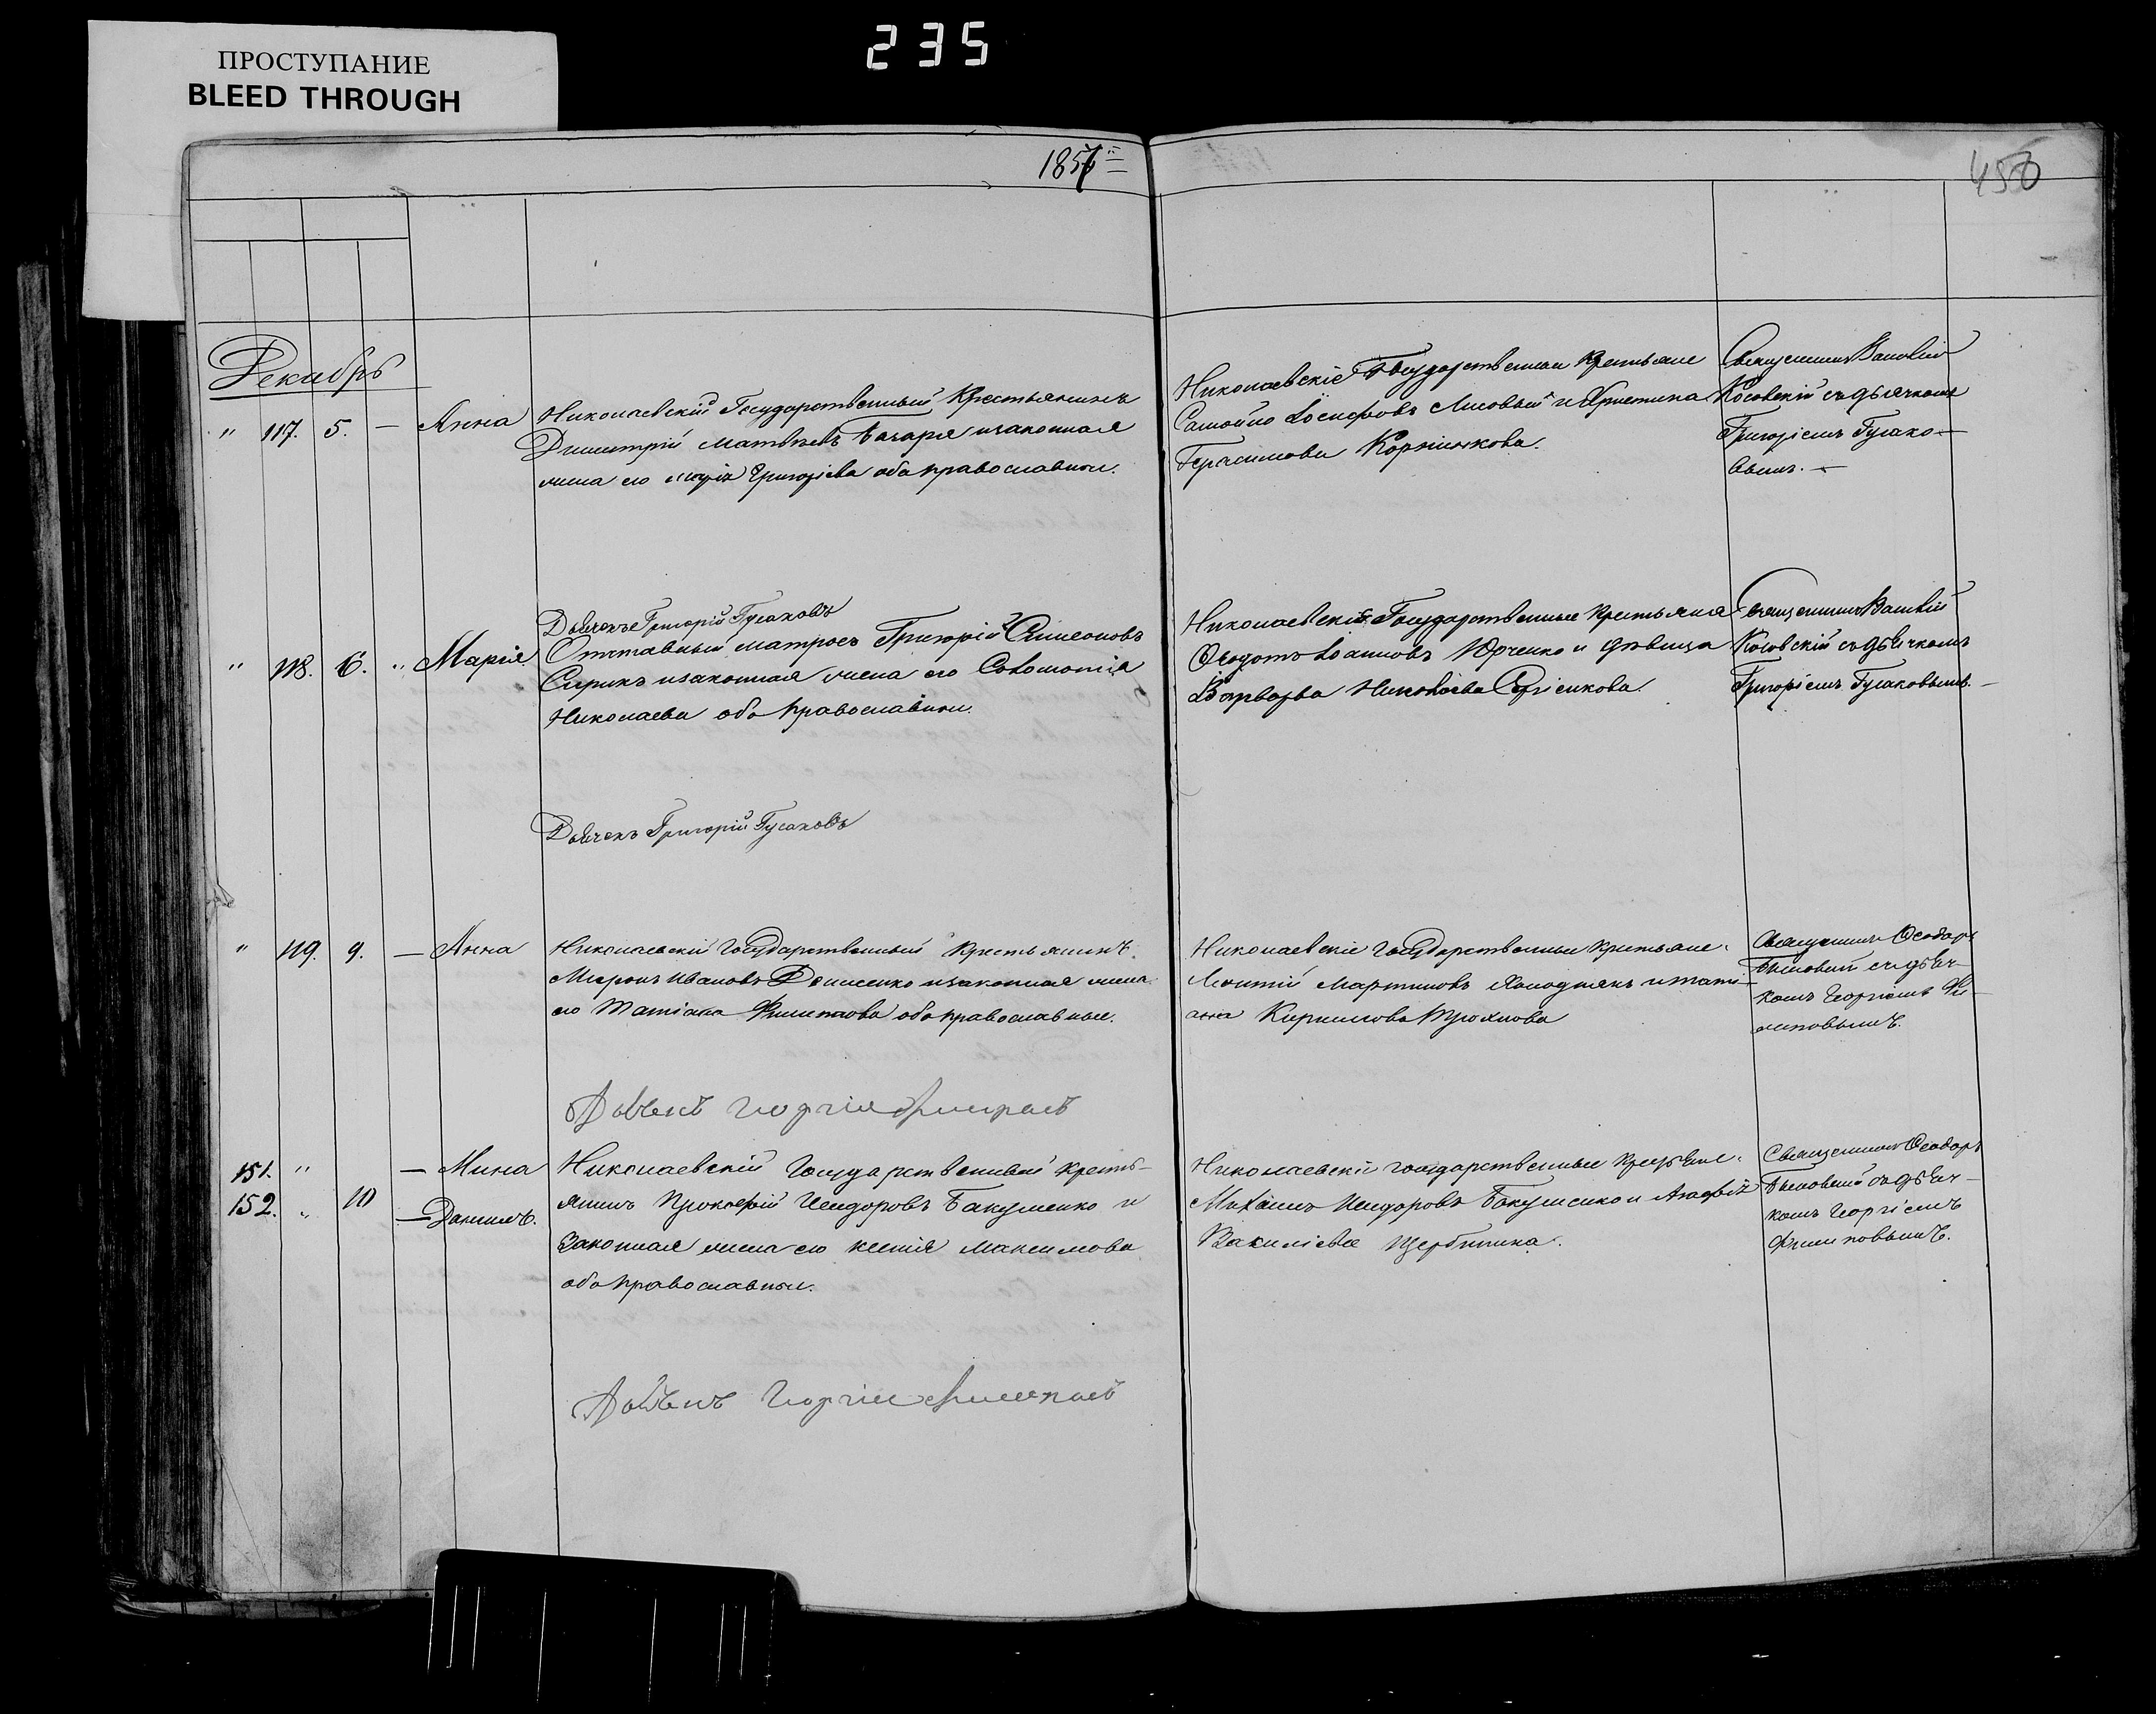 ПРОСТУПАНИЕ
BLEED THROUGH
235
1856
450
Декабрь
" 117. 5. — Анна
Николаевскій Государственный Крестьянинъ
Димитрій Матвѣевъ изаконная
жена его Марія Григоріева оба православные.
Николаевскіе Государственные Крестьяне
Самойло Іосифовъ Лисовый и Христина
Герасимова Коржикова.
Священникъ Василій
Косовскій съ дьячкомъ
Григоріемъ Гусако-
вымъ. —
Дьячекъ Григорій Гусаковъ
" 118. 6. " Марія
Отставный матросъ Григорій Симеоновъ
Сирикъ изаконная жена его Соломонія
Николаева оба православные.
Николаевскіе Государственные Крестьяне
Ѳеодотъ Іоанновъ Юрченко и дѣвица
Варвара Николаева Сергіенкова.
Священникъ Василій
Косовскій съ дьячкомъ
Григоріемъ Гусаковымъ. —
Дьячекъ Григорій Гусаковъ
" 119. 9. — Анна
Николаевскій Государственный Крестьянинъ
Миронъ Ивановъ Денисенко изаконная жена
его Татіана Филипова оба православные.
Николаевскіе Государственные Крестьяне
Леонтій Мартиновъ и Тати-
анна Кирилова
Священникъ Ѳеодоръ
съ дьяч-
комъ Георгіемъ Фи-
липовымъ.
Дьячекъ Георгій Филиповъ
151. " — Мина
152. " 10 — Даніилъ.
Николаевскій Государственный Кресть-
янинъ Прокофій Исидоровъ Бакуменко и
Законная жена его Ксенія Максимова
оба православные.
Николаевскіе Государственные Крестьяне
Михаилъ Исидоровъ Бакуменко и Агафія
Василіева Щербинина.
Священникъ Ѳеодоръ
съ дьяч-
комъ Георгіемъ
Филиповымъ.
Дьячекъ Георгій Филиповъ